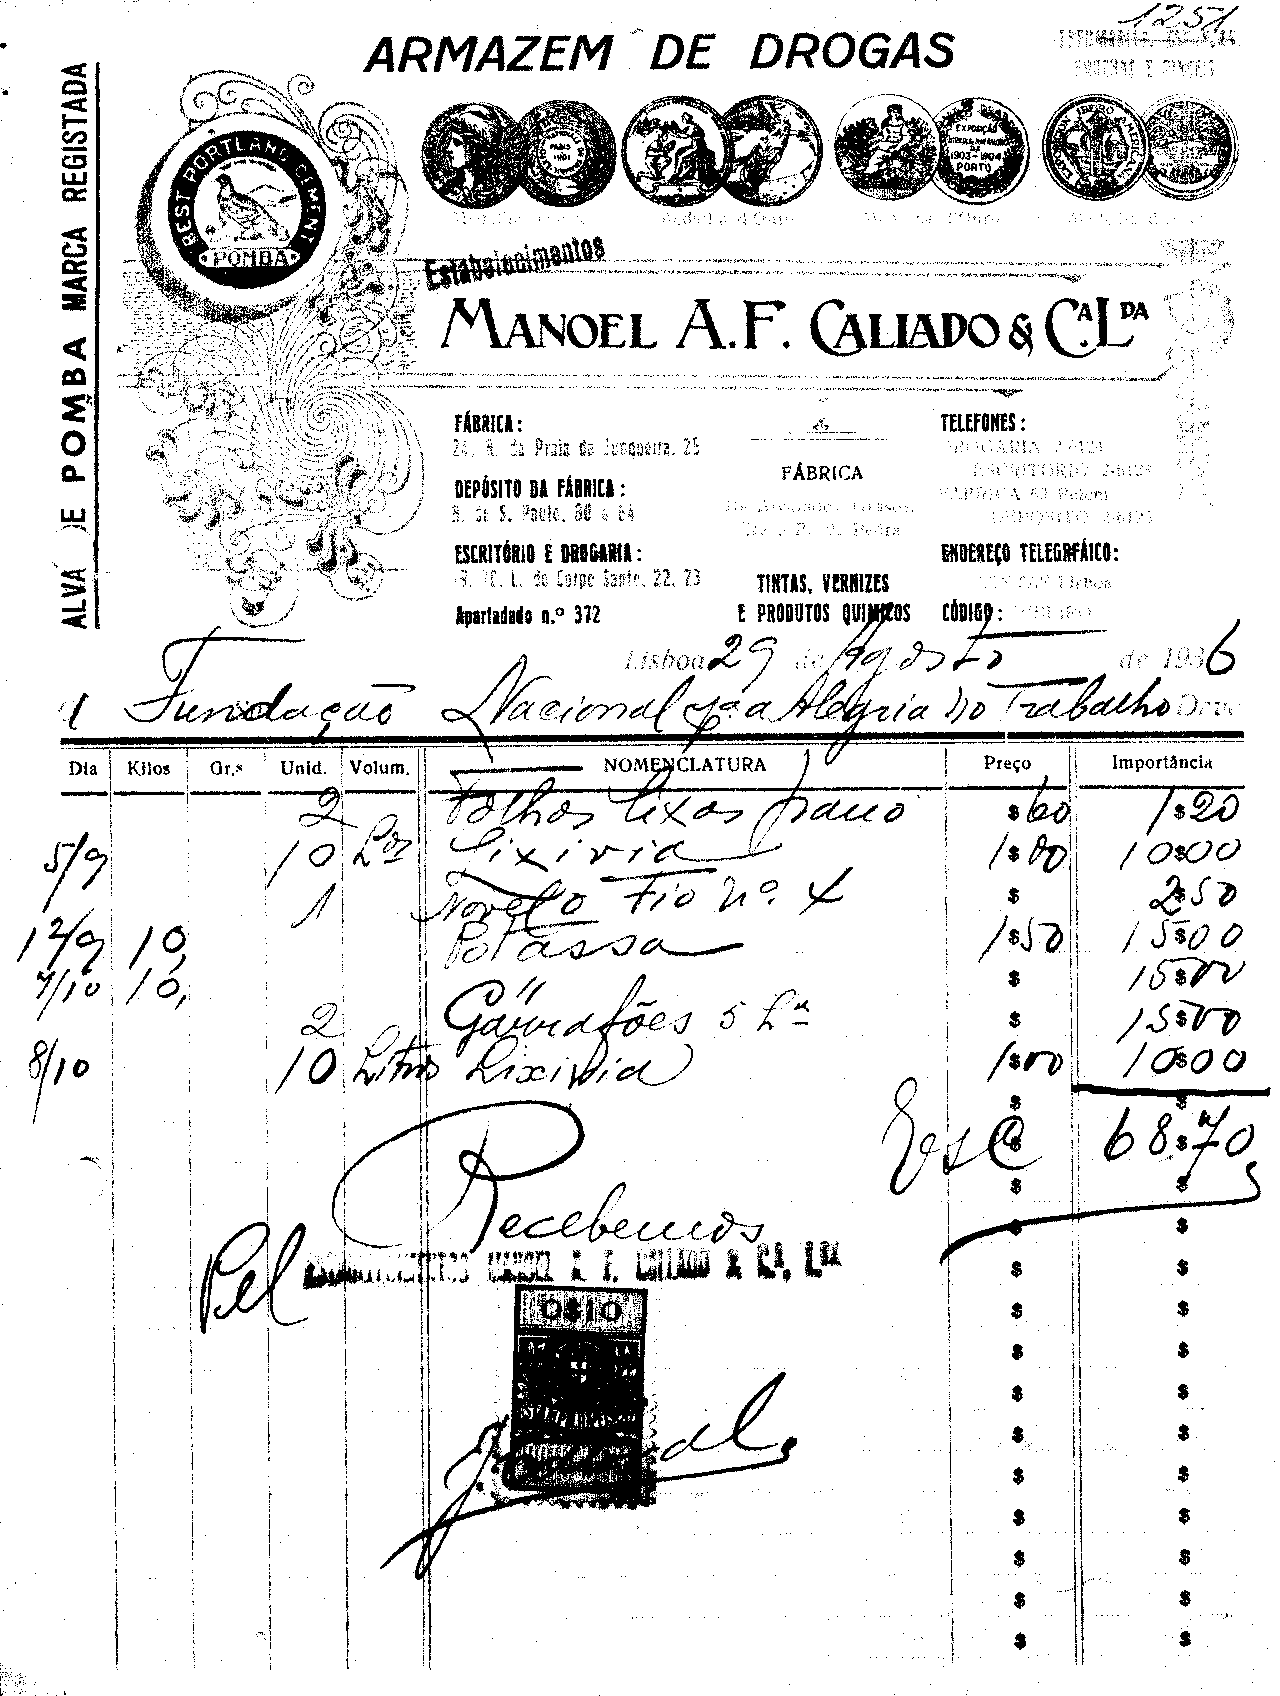 1251
ARMAZEM DE DROGAS
ALVA DE POMBA MARCA REGISTADA
BEST PORTLAND CEMENT
POMBA
EXPOSIÇÃO
1903-1904
PORTO
Estabelecimentos
MANOEL A. F. CALIADO & CA. LDA
FÁBRICA:
24, R. da Praia da Junqueira, 25
DEPÓSITO DA FÁBRICA:
R. de S. Paulo, 80 a 84
ESCRITÓRIO E DROGARIA:
R. C. L. do Corpo Santo, 22, 23
Apartadado n.º 372
FÁBRICA
TINTAS, VERNIZES
E PRODUTOS QUIMICOS
TELEFONES:
DROGARIA
ESCRITÓRIO
FABRICA 63 Belem
DEPOSITO
ENDEREÇO TELEGRFÁICO:
Lisboa
CÓDIGO:
Lisboa 29 de Agosto de 1936
A Fundação Nacional pª a Alegria no Trabalho Deve
Dia Kilos Gr.s Unid. Volum. NOMENCLATURA Preço Importância
2 Folhas lixas pano $60 1$20
5/9 10 Los Lixivia 1$00 10$00
1 Novelo Fio nº. 4 $ 2$50
12/9 10, Potassa 1$50 15$00
7/10 10, " $ 15$00
2 Garrafões 5 Ls $ 15$00
8/10 10 Litros Lixivia 1$00 10$00
Esc $ 68$70
Recebemos
Pel ESTABELECIMENTOS MANOEL A. F. CALIADO & CA. LDA
0$10